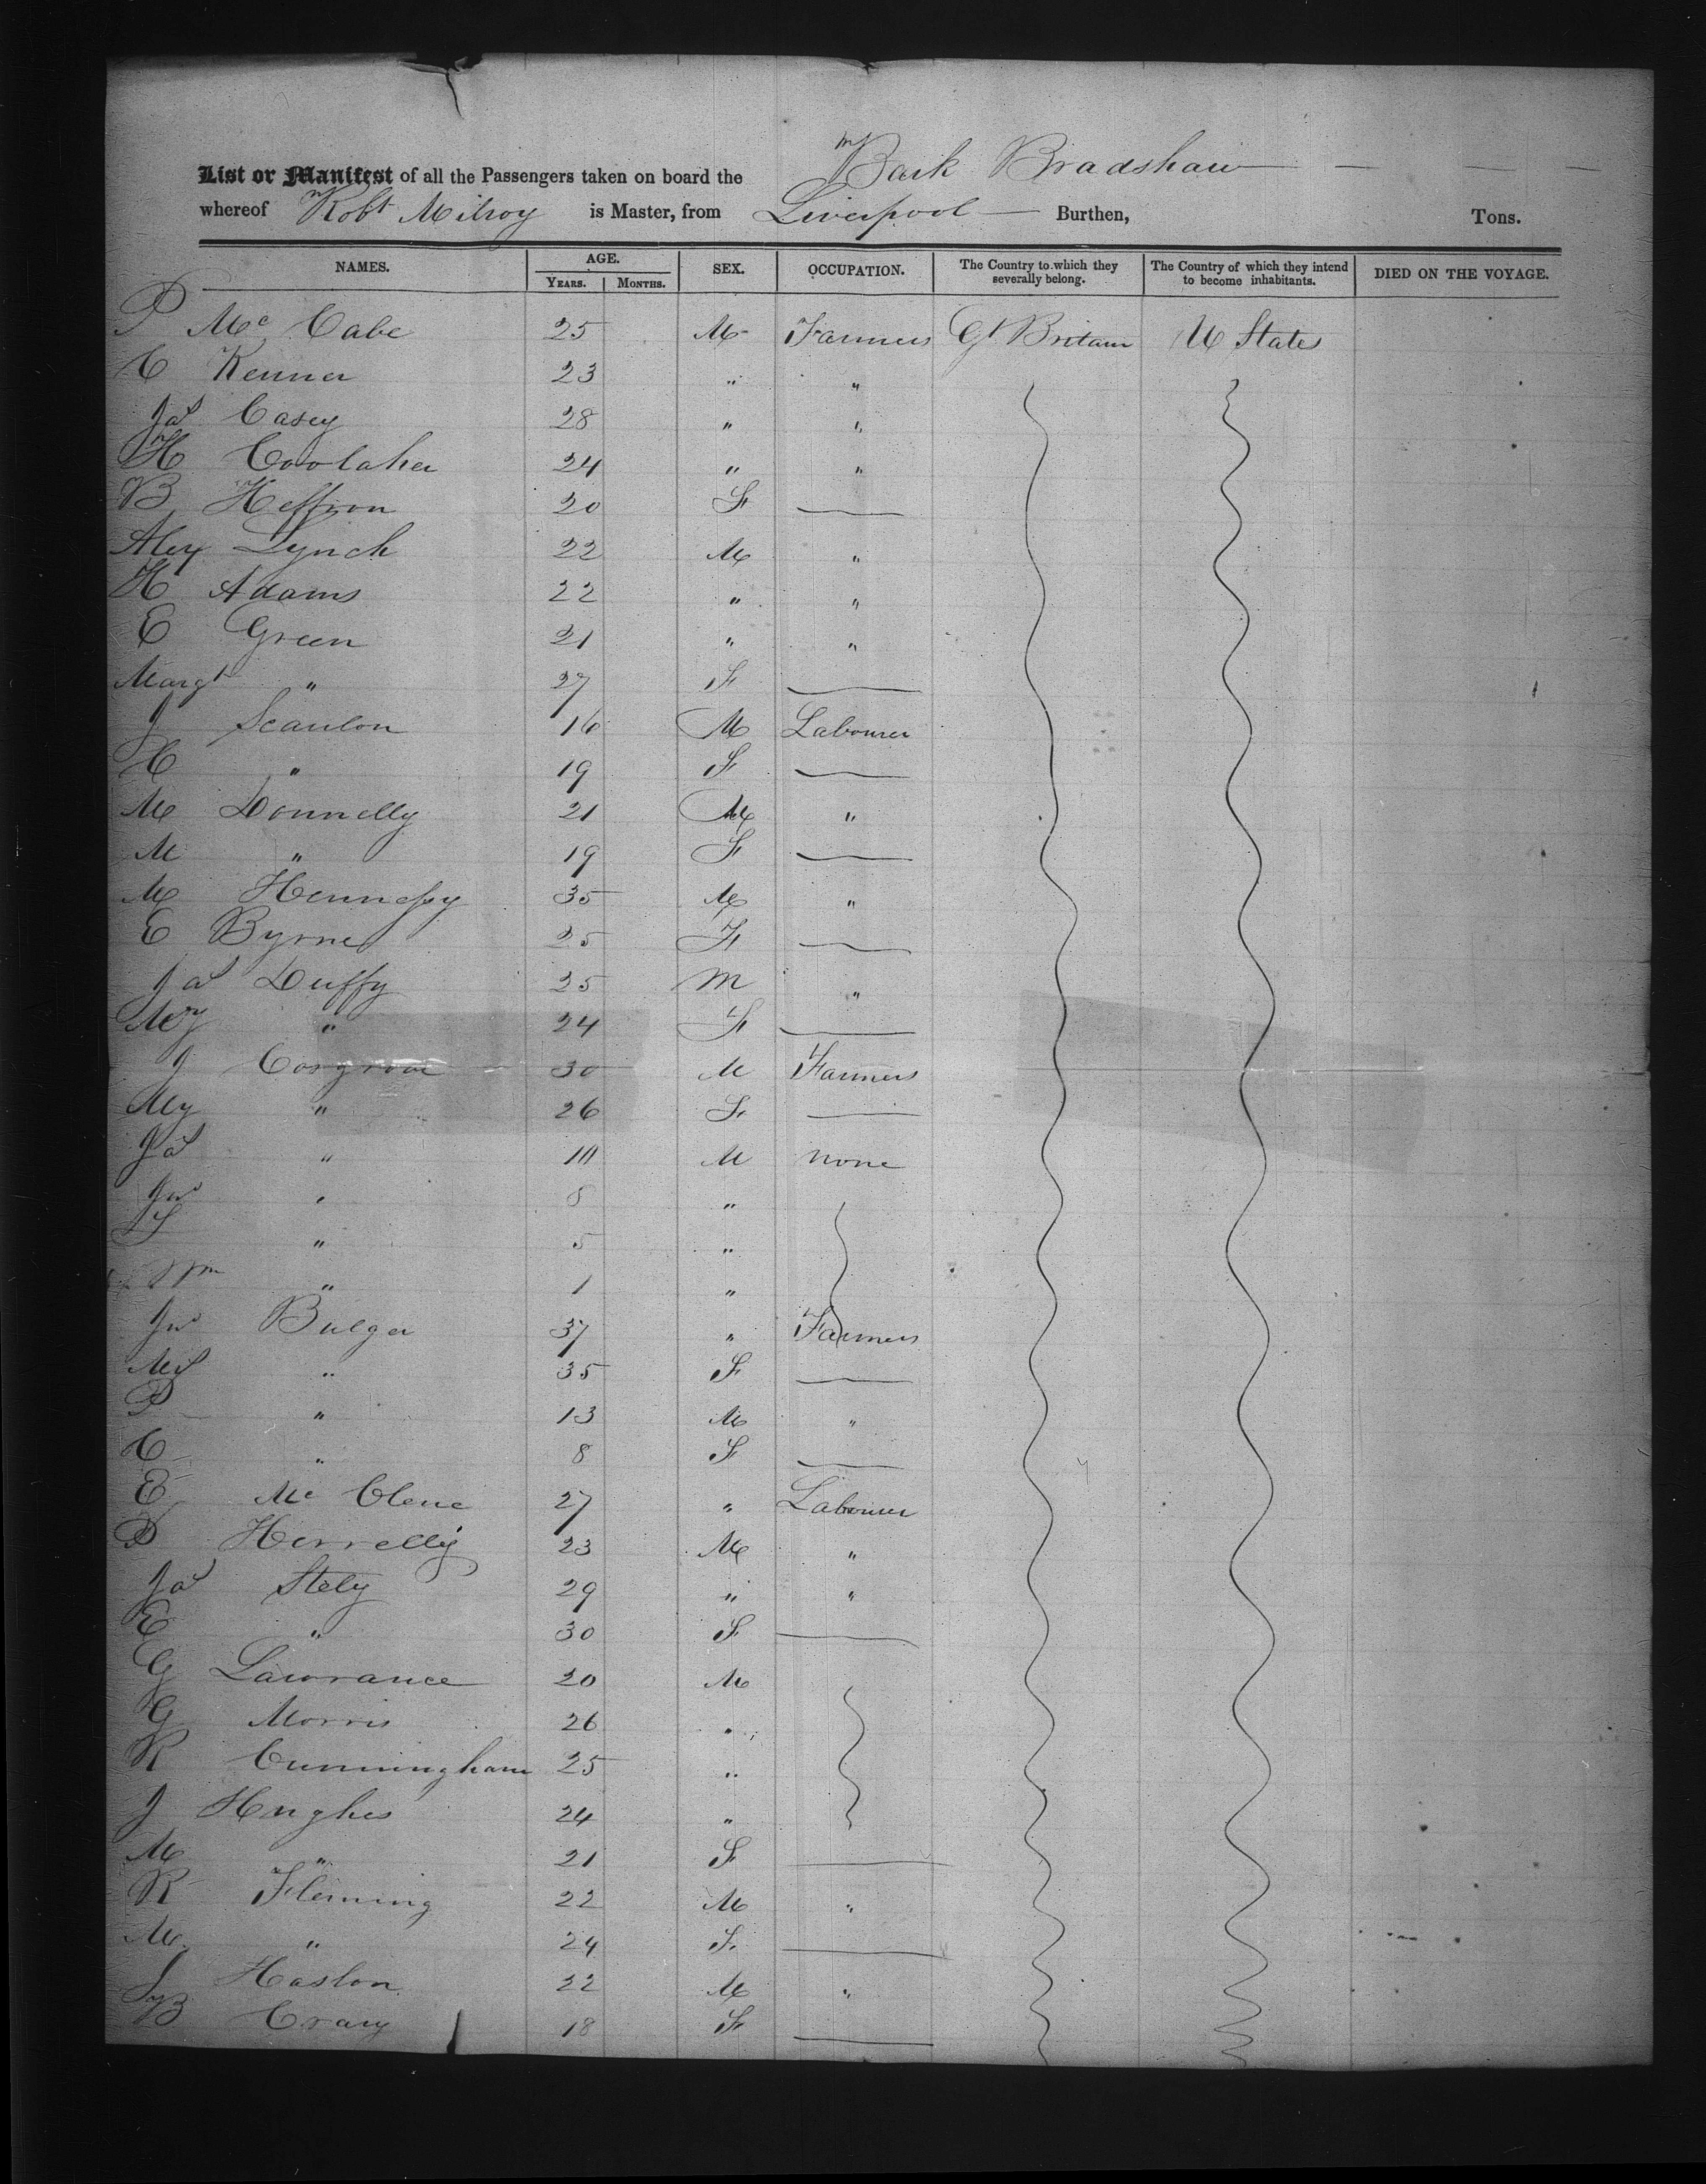 List or Manifest of all the Passengers taken on board the Bark Bradshaw
whereof Robt Milroy is Master, from Liverpool Burthen, Tons.
NAMES. AGE. YEARS. MONTHS. SEX. OCCUPATION. The Country to which they severally belong. The Country of which they intend to become inhabitants. DIED ON THE VOYAGE.
P Mc Cabe 25 M Farmers Gt Britain U States
C Kenner 23 " "
Jas Casey 28 " "
H Coolaher 24 " "
B Heffron 20 F
Alex Lynch 22 M "
H Adams 22 " "
E Green 21 " "
Margt " 27 F
J Scanlon 16 M Labourer
C " 19 F
M Donnelly 21 M "
M " 19 F
M Hennessy 35 M "
E Byrne 25 F
Jas Duffy 25 M "
My " 24 F
J Cosgrove 30 M Farmers
My " 26 F
Jas " M none
Jno " 8 "
" 5 "
Wm " 1 "
Jno Bulger 37 " Farmers
" 35 F
P " 13 M "
C " 8 F
E Mc Clene 27 " Labourer
P Herrelly 23 M "
Jas Stely 29 " "
E " 30 F
G Lawrance 20 M
G Morris 26 "
R Cunningham 25 "
J Hughes 24 "
M " 21 F
R Fleming 22 M "
M " 24 F
J Haslon 22 M "
B Crary 18 F